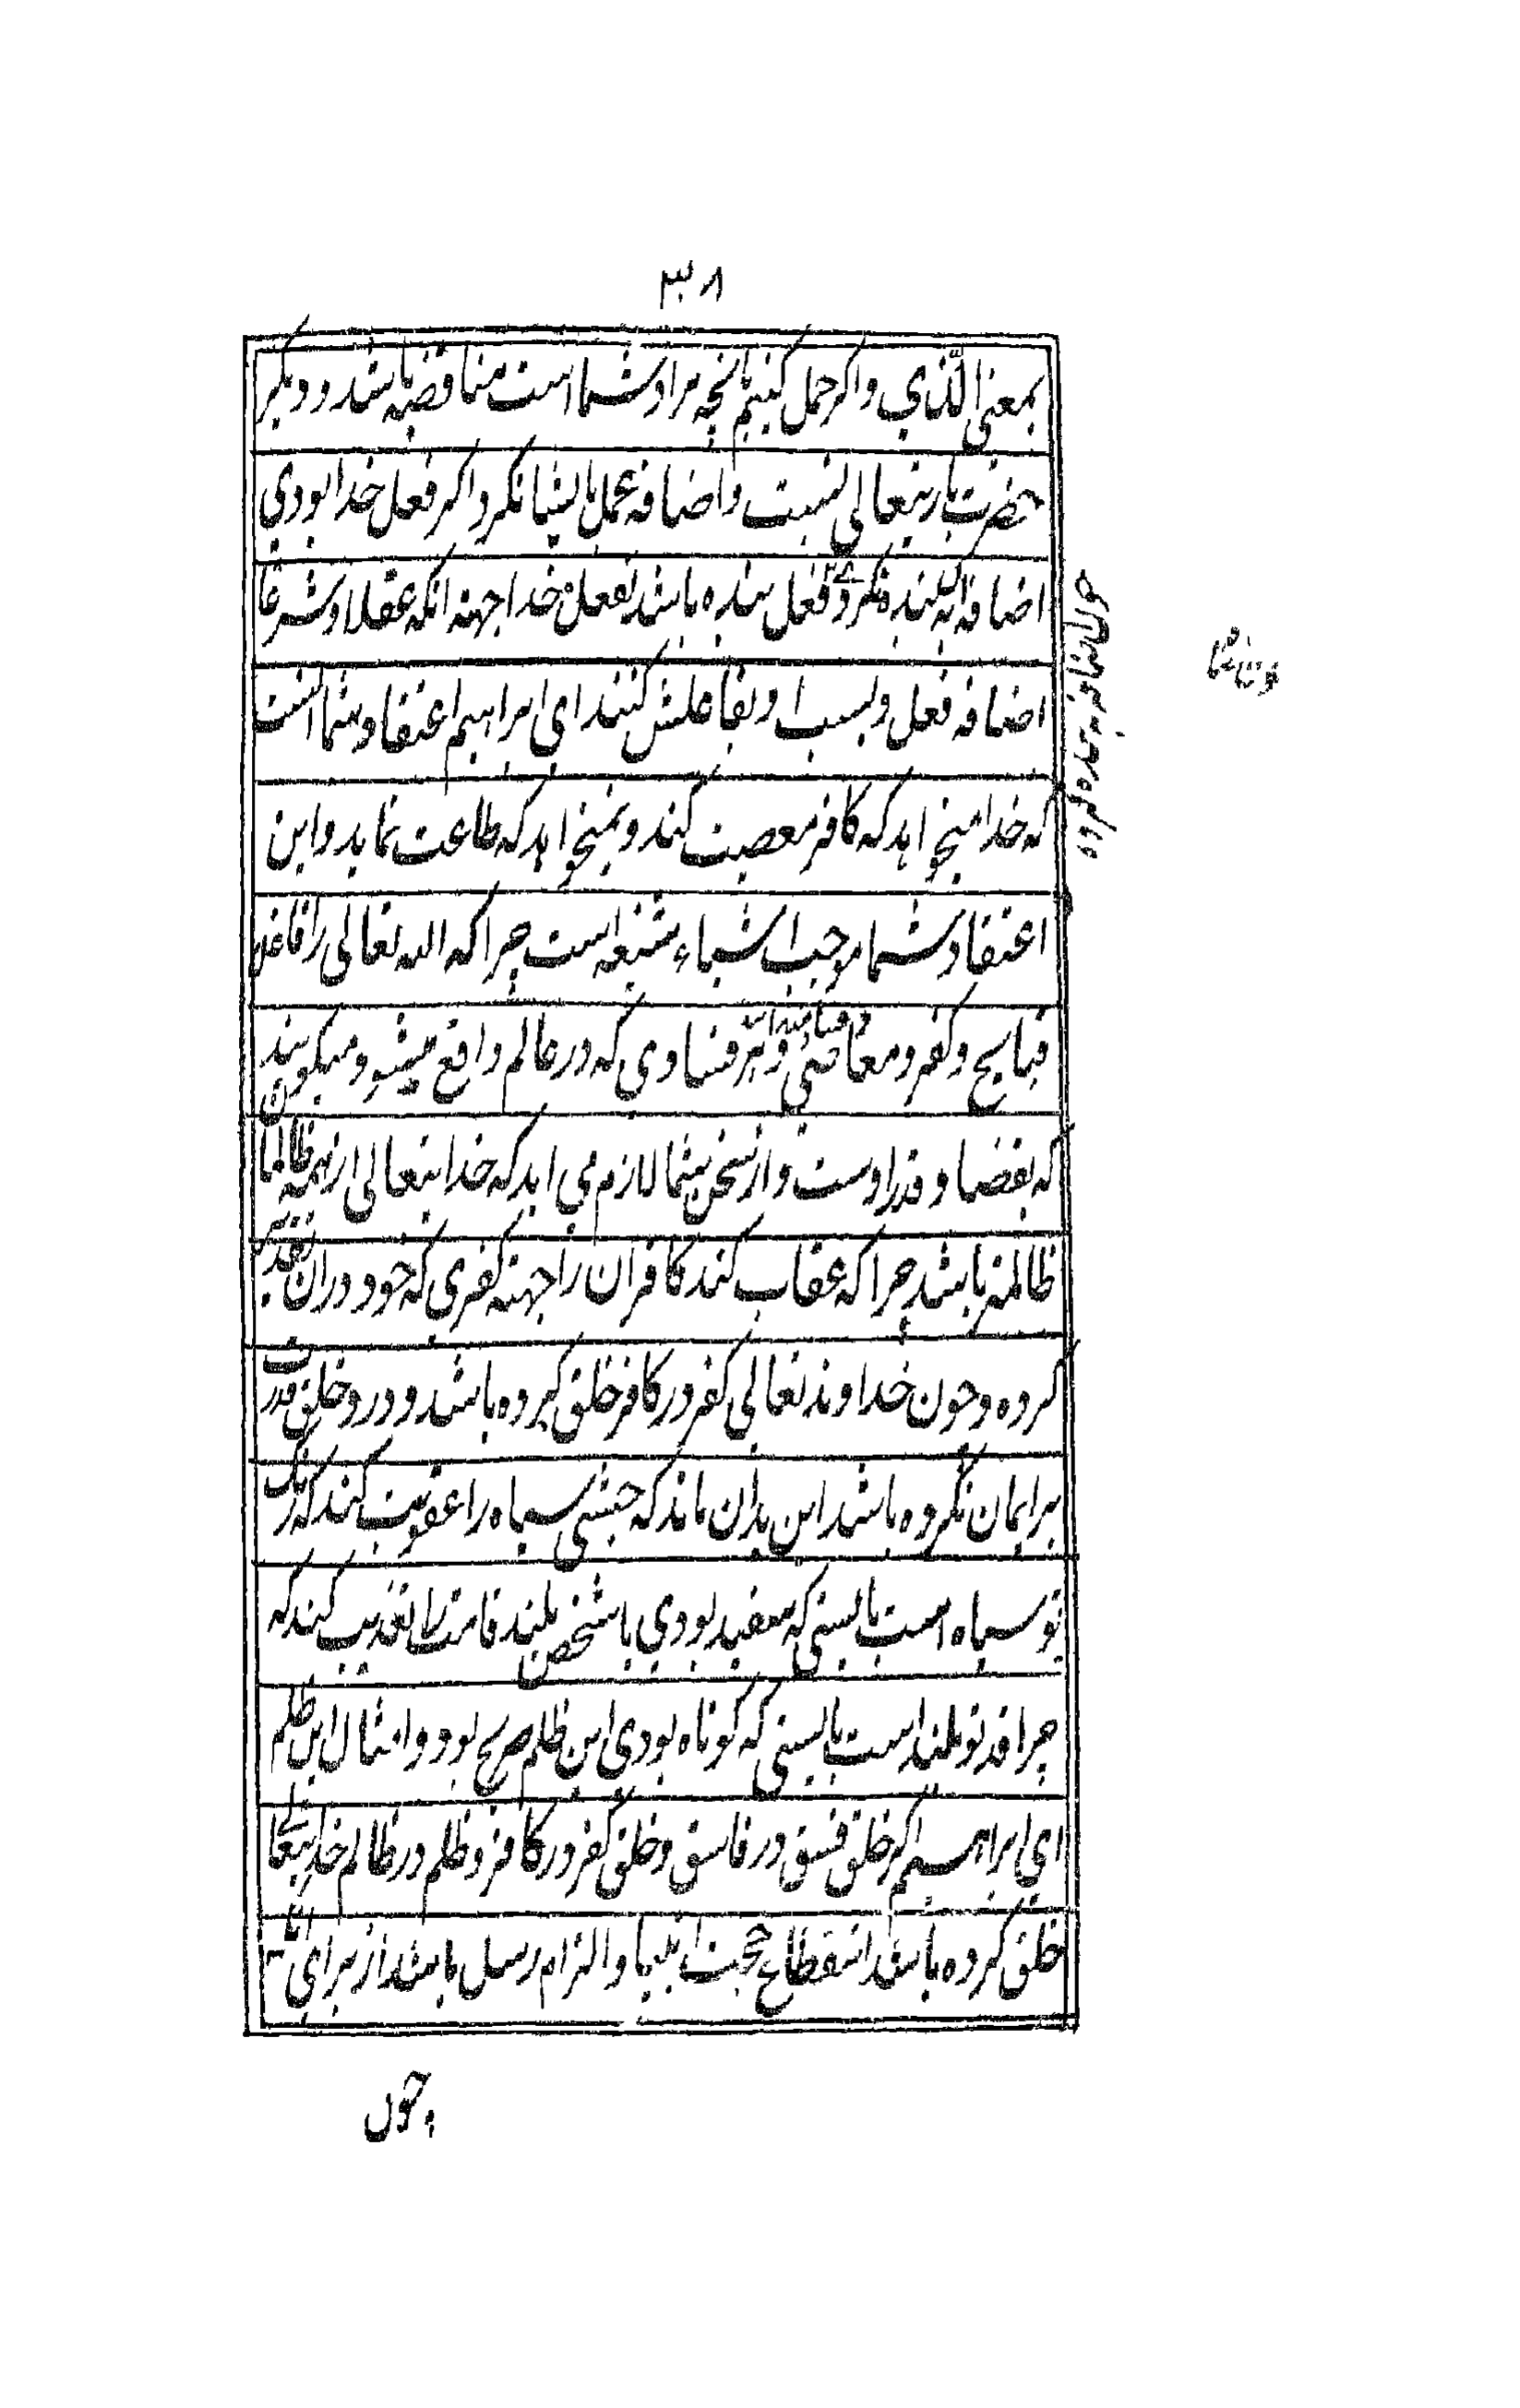 ۳۰۸
بمعنی الّذی و اکر حمل کنیم بانچه مراد شما است مناقضه باشد و دیکر
حضرت باریتعالی نسبت و اضافه عمل بایشان کرد اکر فعل خدا بودی
اضافه به بنده نکردی فعل بنده باشد نه فعل خدا جهته انکه عقلا و شرعا
اضافه فعل و نسبت او بفاعلش کنند ای ابراهیم اعتقاد شما انست
که خدا میخواهد که کافر معصیت کند و نمیخواهد که طاعت نماید و این
اعتقاد شما موجب اشیاء شنیعه است چرا که الله تعالی را فاعل
قبایح و کفر و معاصی و هر فسادی که در عالم واقع میشود میکویند
که بقضا و قدر اوست و از سخن شما لازم می اید که خدایتعالی از همه ظالمان
ظالمتر باشد چرا که عقاب کند کافران را جهته کفری که خود در ان تقدیر
کرده و چون خداوند تعالی کفر در کافر خلق کرده باشد و در و خلق قدرت
بر ایمان نکرده باشد این بدان ماند که حبشی سیاه را عقوبت کند که رنک
تو سیاه است بایستی که سفید بودی یا شخص بلند قامت را تعذیب کند که
چرا قد تو بلند است بایستی که کوتاه بودی این ظلم صریح بود و امثال این ظلم
ای ابراهیم اکر خلق فسق در فاسق و خلق کفر در کافر و ظلم در ظالم خدایتعالی
خلق کرده باشد انقطاع حجت انبیا و الزام رسل باشد از برای انکه
چون